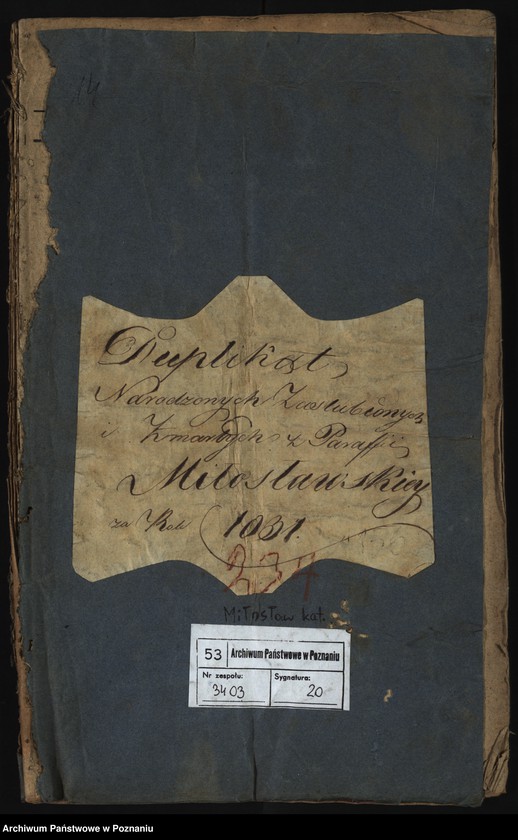 14
Duplikat
Narodzonych Zaslubionych
i Zmarłych z Paraffii
Miłosławskiey
za Rok 1831.
234
Miłosław kat.
53 Archiwum Państwowe w Poznaniu
Nr zespołu: Sygnatura:
3403 20
Archiwum Państwowe w Poznaniu